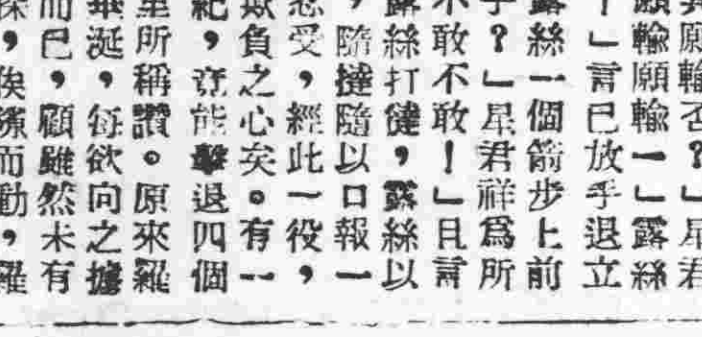 輸否?」星君
願輸願輸一」露絲
!」言已放手退立
露絲一個箭步上前
?」星君祥爲所
不敢不敢!」且言
露絲打,露絲以
,隨撻隨以口報一
受,經此一役,
欺負之心矣。有一
紀,竟能擊退四個
里所稱讚。原來羅
垂涎,每欲向之據
而已,顧雖然未有
,俟隙而動,羅